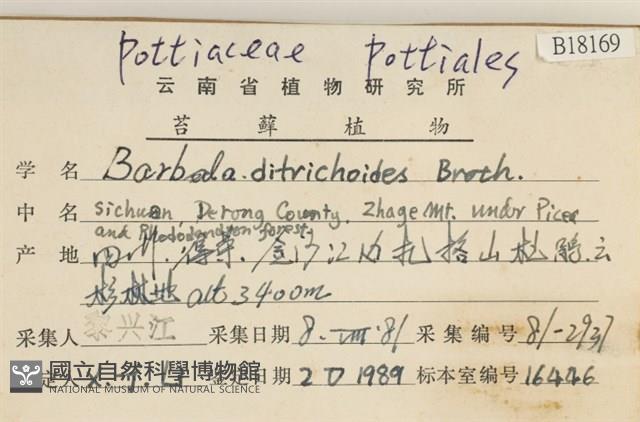 B18169
Pottiaceae Pottiales
云南省植物研究所
苔藓植物
学名 Barbula ditrichoides Broth.
中名 Sichuan, Derong County, Zhage Mt. under Picea
and Rhododendron forest.
产地 四川. 得荣. 金沙江 扎格山杜鹃.云
杉林地 alt 3400m
采集人 黎兴江 采集日期 8.VIII.81 采集编号 81-2937
定人 鉴定日期 1989 标本室编号 16446
國立自然科學博物館
NATIONAL MUSEUM OF NATURAL SCIENCE